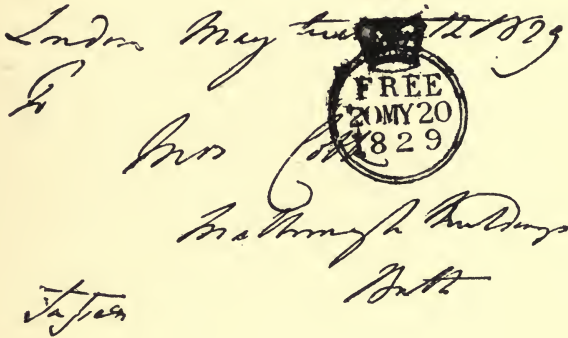 London May twentieth 1829
FREE
20MY20
1829
Mrs
Marlborough Buildings
Bath